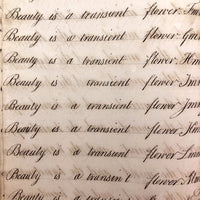 Beauty is a transient flower.
Beauty is a transient flower.
Beauty is a transient flower.
Beauty is a transient flower.
Beauty is transient flower.
Beauty is a transient flower
Beauty is a transient flower.
Beauty is a transient flower.
Beauty is a transient flower.
Beauty is a transient flower